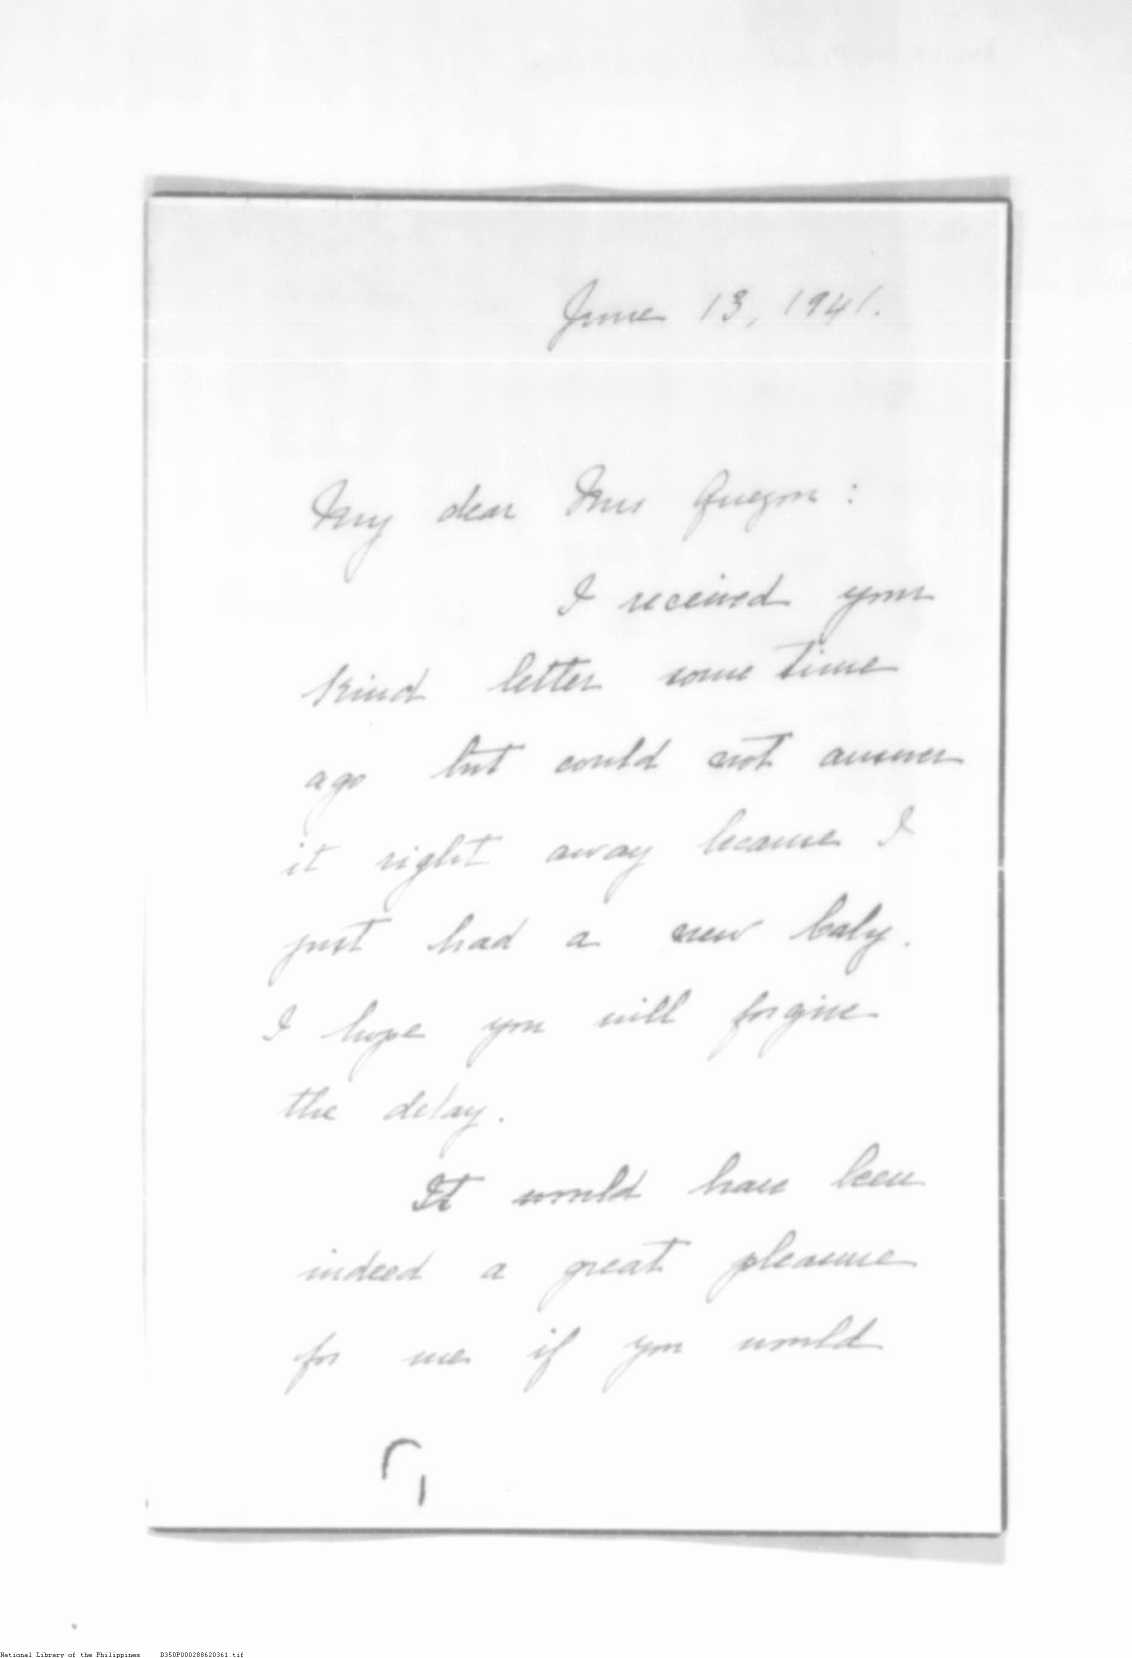 June 13, 1941.
My dear Mrs Quezon:
I received your
kind letter some time
ago but could not answer
it right away because I
just had a new baby.
I hope you will forgive
the delay.
It would have been
indeed a great pleasure
for me if you would
National Library of the Philippines B350P000288620361.tif